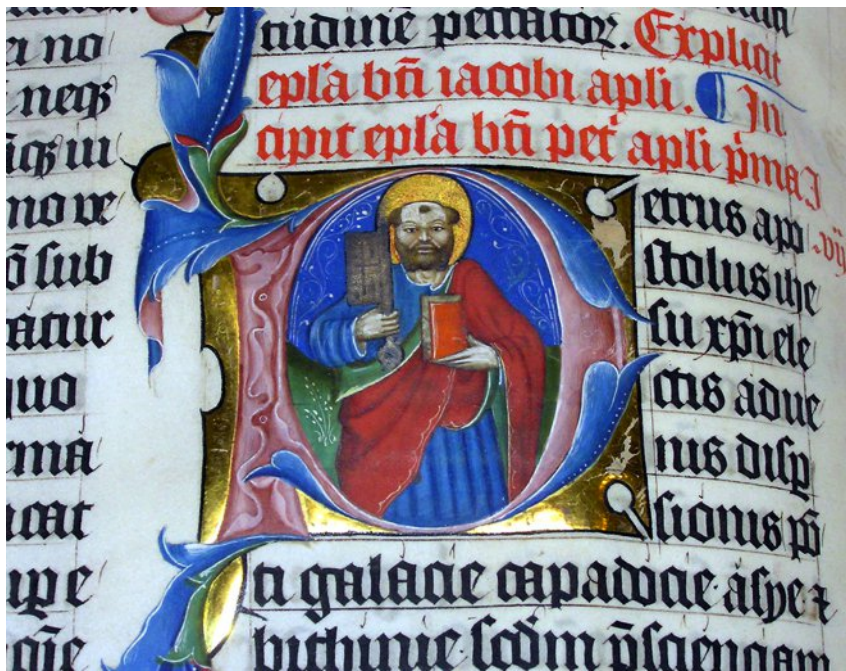 ei no
neqꝫ
iqꝫ iu
no ve
õ sub
catur
quo
rma
icat
ipe
qũe
tudinẽ peccator. Explicit
epl'a bt̃i iacobi apl̃i. In
cipit epl'a bt̃i pet̃ apl̃i p̃ma
etrus apo
stolus ihe
su xp̃i ele
ctis adue
nus disp̲
sionis põ
ti galacie capadocie asye ⁊
bithinie scd̃m p̃scienciam